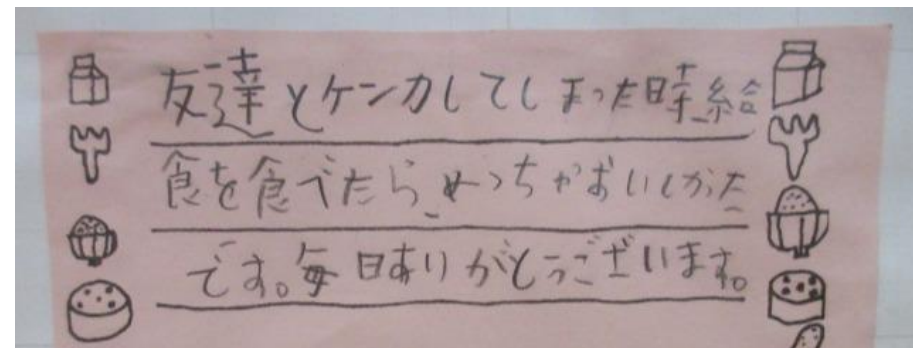 友達とケンカしてしまった時給
食を食べたら、めっちゃおいしかった
です。毎日ありがとうございます。